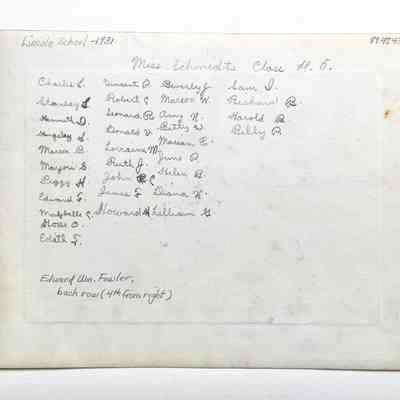 Lincoln School - 1931
Miss Schmidts Class H. 6.
Charles L. Vincent P. Beverly J. Sam I.
Stanley S. Robert C Marion W. Richard B.
Kenneth D. Leonard R. Amy N. Harold B.
S. Donald V. Betty W. Billy P.
Marion B. Lorraine M. Marian E.
Marjori S. Ruth J. June P.
Peggy H. John C Helen B.
Edward F. James F Diana K.
C. Howard H Lillian G
Rose O.
Edith F.
Edward Wm. Fowler,
back row (4th from right)